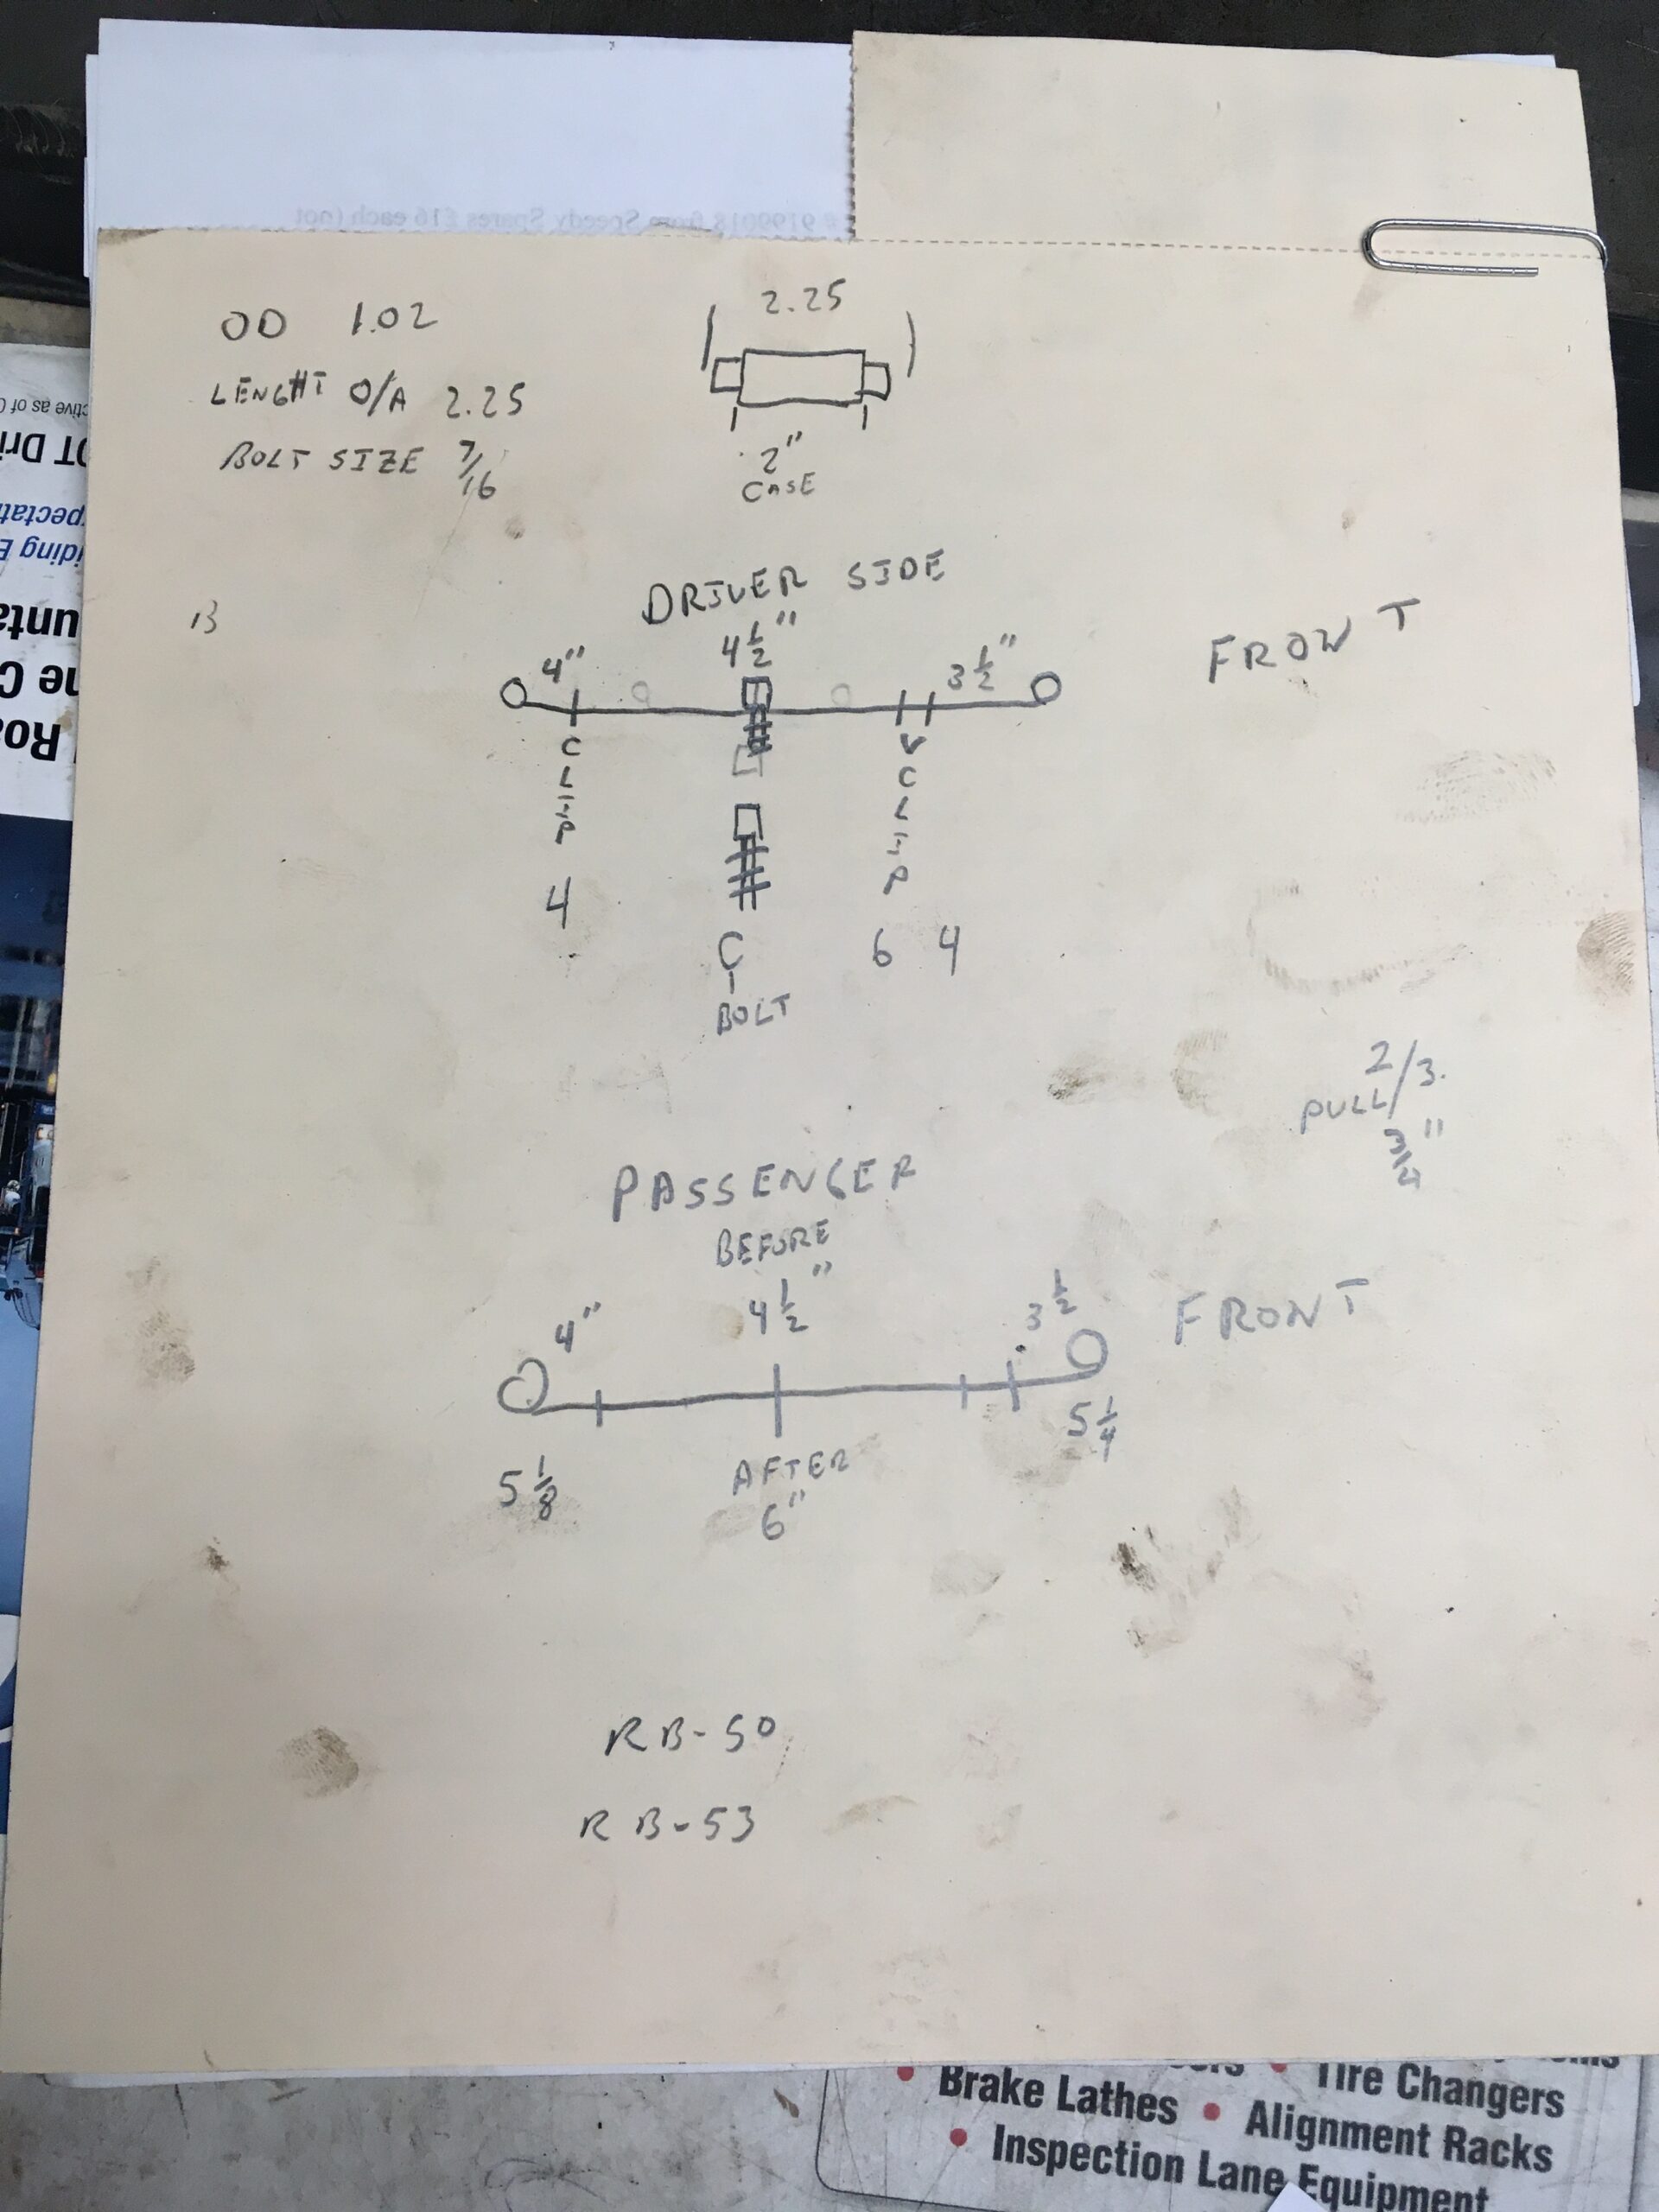 OD 1.02
LENGHT O/A 2.25
BOLT SIZE 7/16
2.25
2"
CASE
DRIVER SIDE
FRONT
4" 4 1/2" 3 1/2"
CLIP CLIP
4 6 4
C
BOLT
2/3
PULL
3/4"
PASSENGER
BEFORE
4" 4 1/2" 3 1/2
FRONT
5 1/8 AFTER 5 1/4
6"
RB-50
RB-53
Tire Changers
Brake Lathes • Alignment Racks
• Inspection Lane Equipment